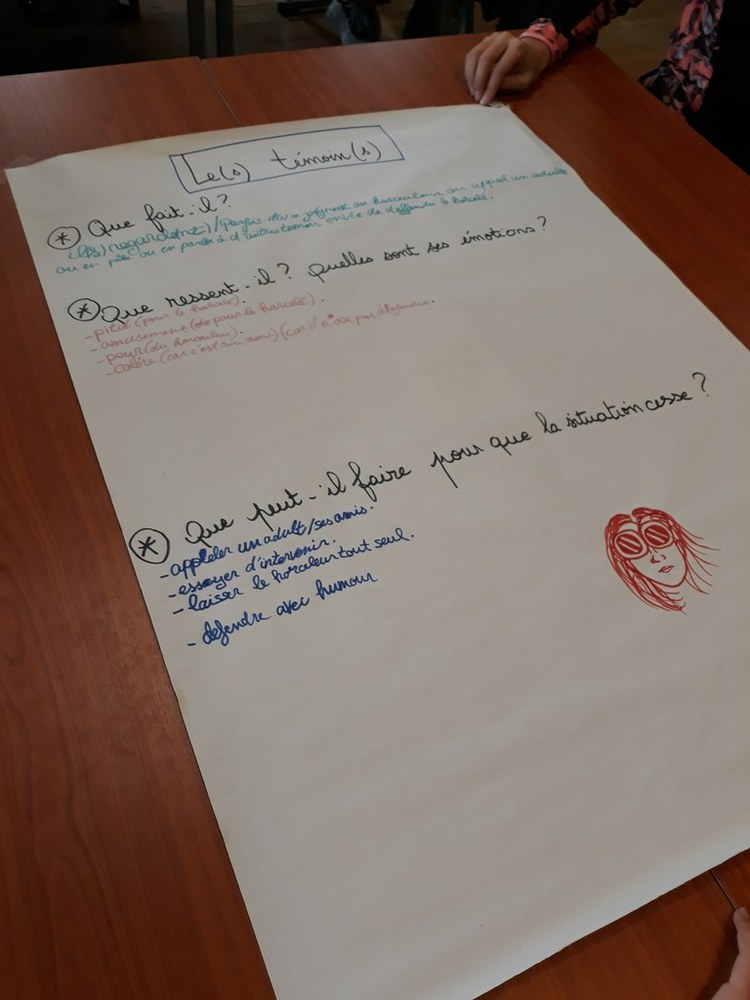 Le(s) témoin(s)
* Que fait-il?
(ils) regarde(nt) / parfois joignent au harceleur ou appel un adulte
ou en parle à d'autres témoin de deffendre le harcelé.
* Que ressent-il? Quelles sont ses émotions?
- pitié (pour le harcelé).
- amusement (de pour le harcelé).
- peur (du harceleur).
- colère (car c'est son ami) (car il n'ose pas
* Que peut-il faire pour que la situation cesse?
- appeler un adult/ses amis.
- essayer d'intervenir.
- laisser le harceleur tout seul.
- défendre avec humour